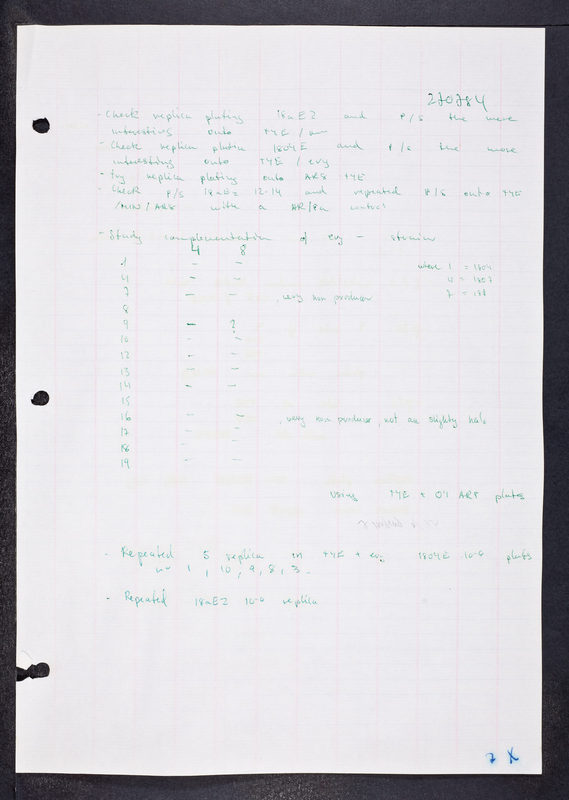 270784
- Check replica plating 18aE2 and P/S the more
interesting onto TYE /
- Check replica plating 1804E and P/S the more
interesting onto TYE / ery
- Try replica plating onto ARS TYE
- Check P/S 18aE2 12-14 and repeated P/S onto TYE
/MIN/ARS with a control
- Study complementation of ery - strains
4 8
1 - -
4 - -
7 - - , very non producer
8
9 - ?
10 - -
12 - -
13 - -
14 - -
15
16 - - , very non producer, not an slighty halo
17 - -
18 - -
19 - -
where 1 = 1804
4 = 1807
7 =
Using TYE + plates
- Repeated 5 replica on TYE + ery 1804E 10-6 plates
nº 1, 10, 9, 8, 3.
- Repeated 18aE2 10-6 replica
7 X